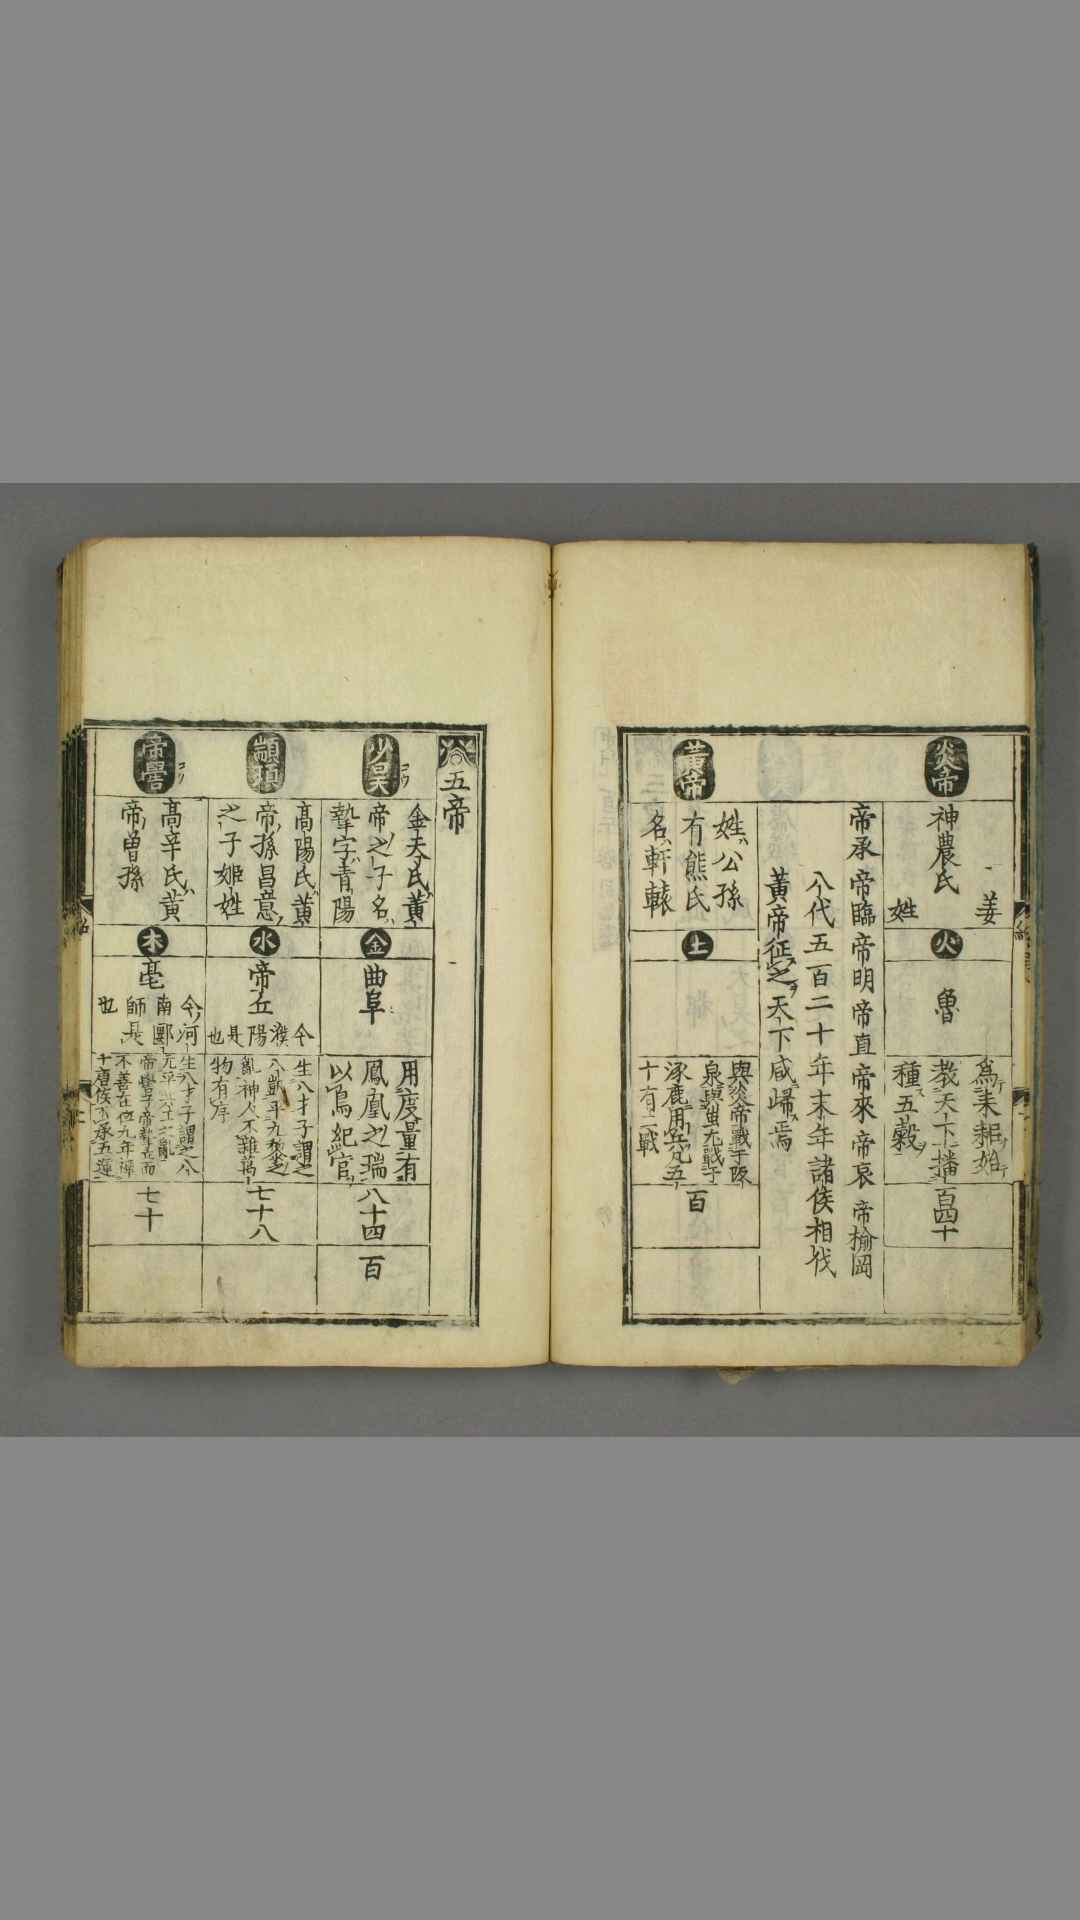 炎帝
神農氏
姜
姓
火
魯
爲耒耜始
教天下播
種五穀
百四十
帝承帝臨帝明帝直帝來帝哀帝榆罔
八代五百二十年末年諸侯相伐
黃帝征之天下咸歸焉
黃帝
姓公孫
有熊氏
名軒轅
土
與炎帝戰于阪
泉與蚩尤戰于
涿鹿用兵凡五
十有二戰
百
五帝
少昊
金天氏黃
帝之子名
摯字青陽
金
曲阜
用度量有
鳳凰之瑞
以鳥紀官
八十四
百
顓頊
高陽氏黃
帝孫昌意
之子姬姓
水
帝丘
今濮陽是也
生八才子謂之
八凱平九黎之
亂神人不雜萬
物有序
七十八
帝嚳
高辛氏黃
帝曾孫
木
亳
今河
南郾
師是
也
生八才子謂之八
元平共工之亂
帝嚳子帝摯立而
不善在位九年禪
七十